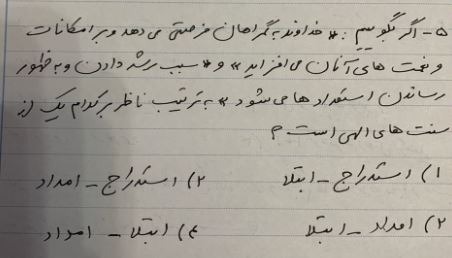 ۵- اگر بگوییم: «خداوند به گمراهان فرصتی می دهد و بر امکانات
و نعمت های آنان می افزاید» و «سبب رشد دادن و به ظهور
رساندن استعدادها می شود» به ترتیب ناظر بر کدام یک از
سنت های الهی است؟
۱) استدراج - ابتلا ۲) استدراج - امداد
۳) امداد - ابتلا ۴) ابتلا - امداد